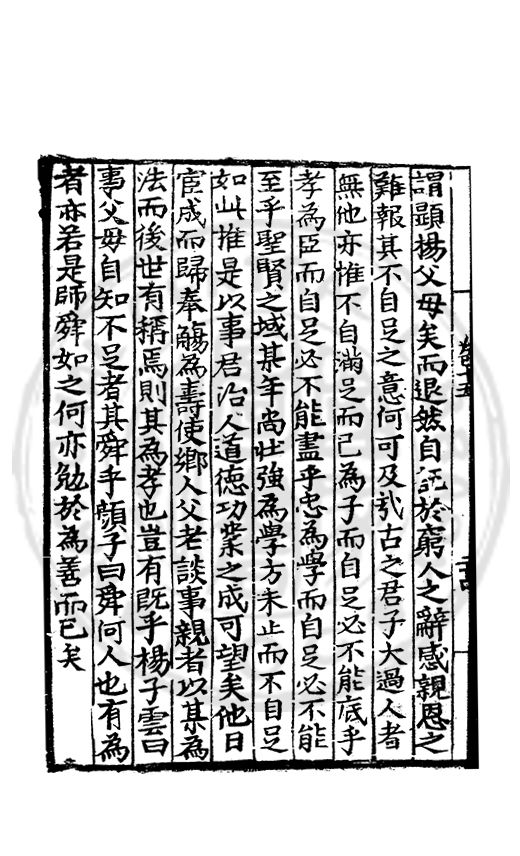 謂顯揚父母矣而退然自託於窮人之辭感親恩之
難報其不自足之意何可及哉古之君子大過人者
無他亦惟不自滿足而已為子而自足必不能底乎
孝為臣而自足必不能盡乎忠為學而自足必不能
至乎聖賢之域某年尚壯強為學方未止而不自足
如此推是以事君治人道德功業之成可望矣他日
宦成而歸奉觴為壽使鄉人父老談事親者以某為
法而後世有稱焉則其為孝也豈有既乎楊子雲曰
事父母自知不足者其舜乎顏子曰舜何人也有為
者亦若是師舜如之何亦勉於為善而已矣